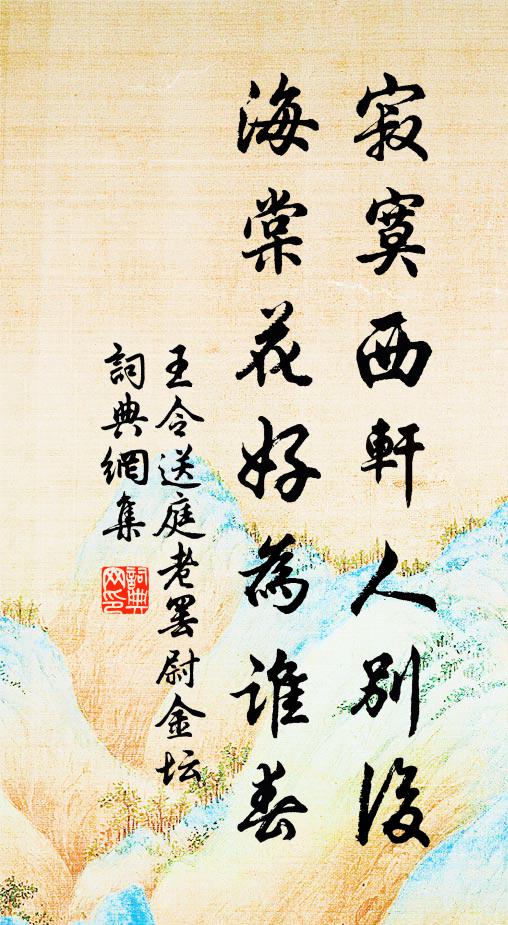 寂寞西軒人別後
海棠花好為誰春
王令送庭老罢尉金坛
詞典網集
詞典網印